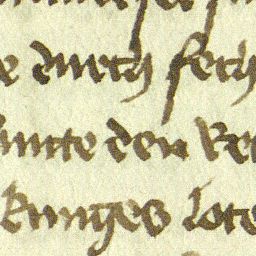 e durch sech
unte den Re
kunges lote